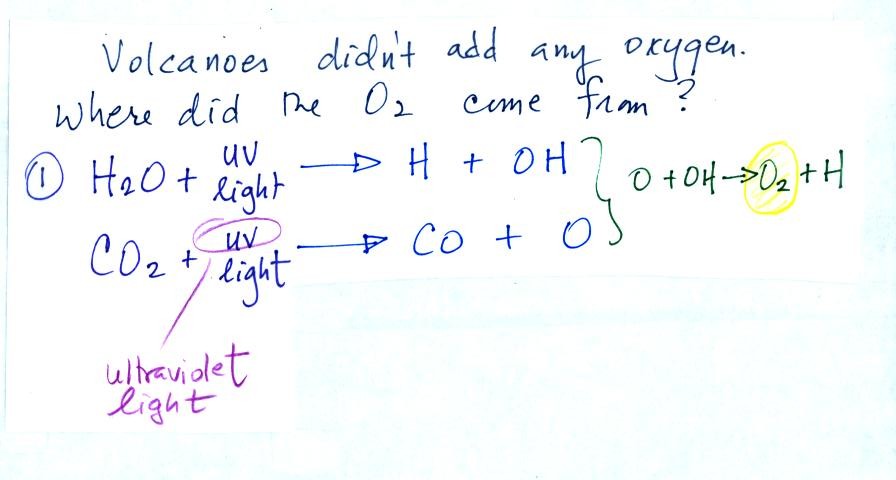 Volcanoes didn't add any oxygen.
Where did the O2 come from?
① H2O + uv light → H + OH } O + OH → O2 + H
CO2 + uv light → CO + O
ultraviolet
light